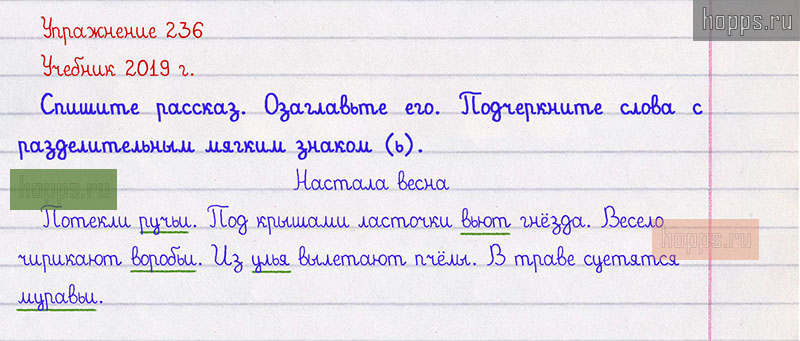 hopps.ru
Упражнение 236
Учебник 2019 г.
Спишите рассказ. Озаглавьте его. Подчеркните слова с
разделительным мягким знаком (ь).
Настала весна
hopps.ru
Потекли ручьи. Под крышами ласточки вьют гнёзда. Весело
hopps.ru
чирикают воробьи. Из улья вылетают пчёлы. В траве суетятся
муравьи.